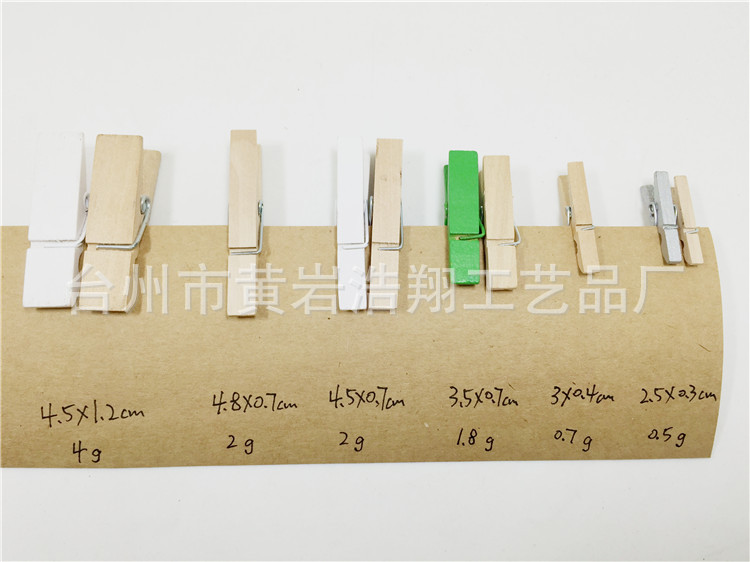 台州市黄岩浩翔工艺品厂
4.5X1.2cm 4.8X0.7cm 4.5X0.7cm 3.5X0.7cm 3X0.4cm 2.5X0.3cm
4g 2g 2g 1.8g 0.7g 0.5g